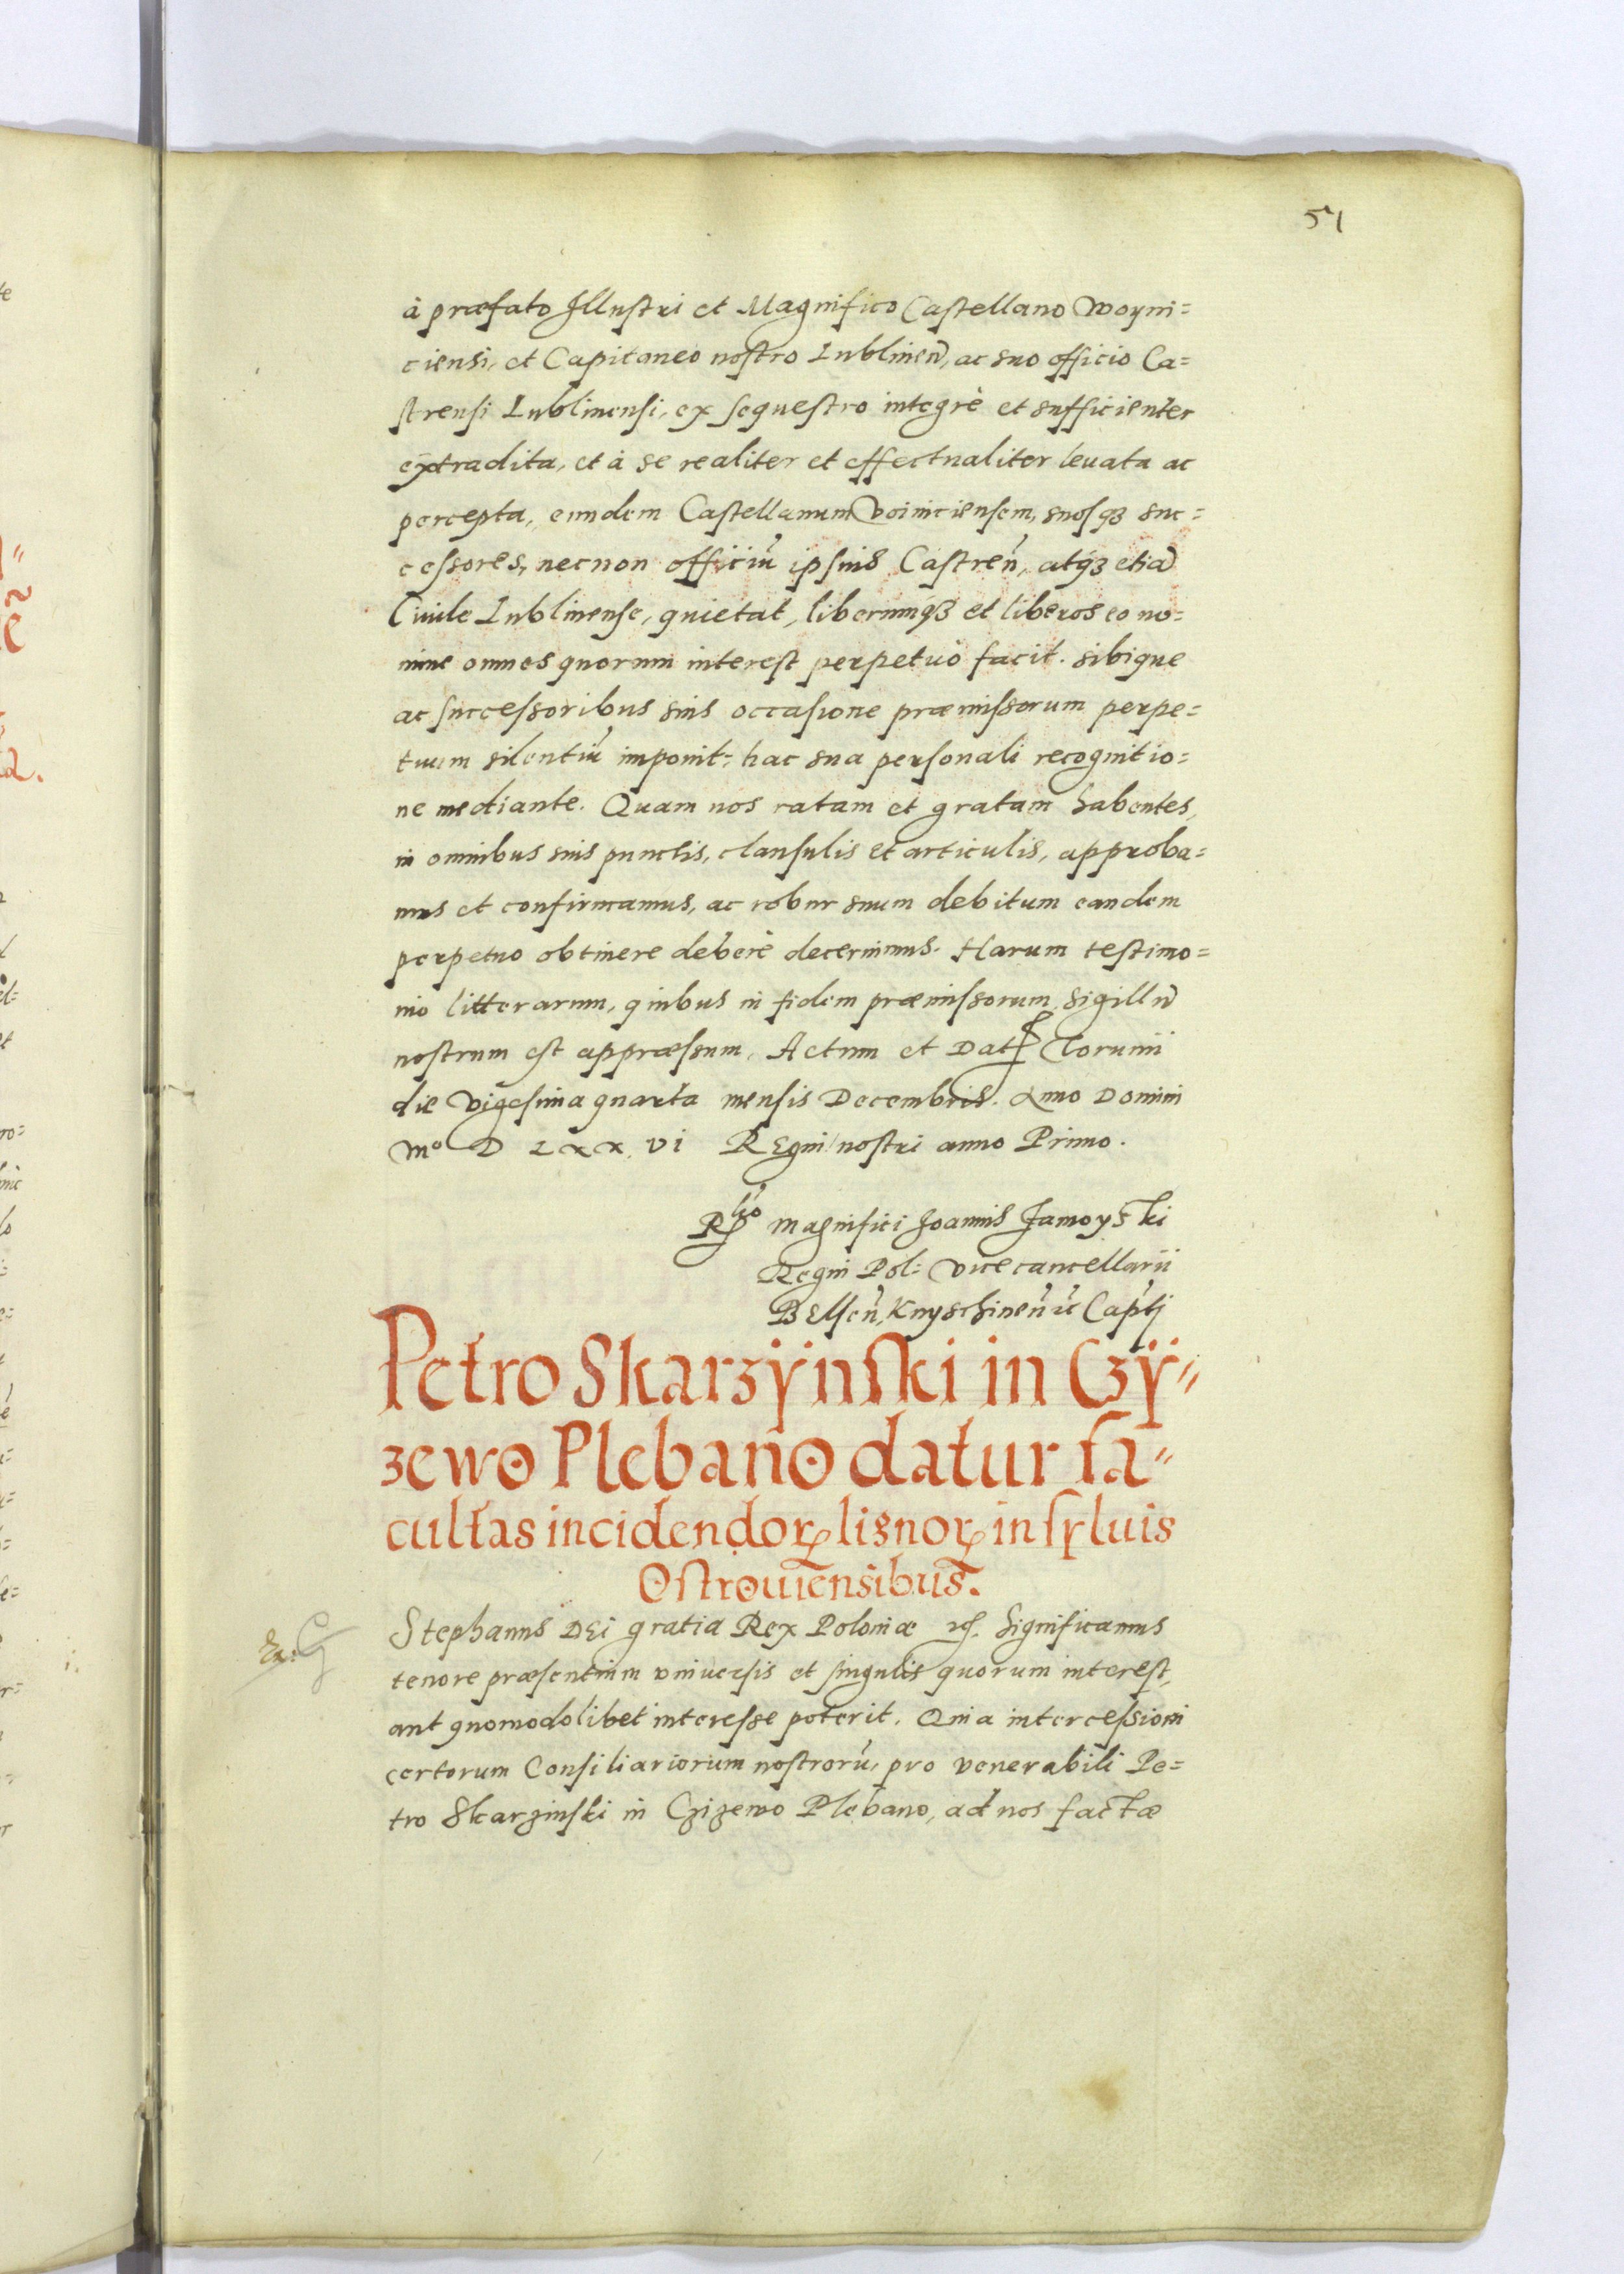 51
à præfato Illustri et Magnifico Castellano Woyni=
ciensi, et Capitaneo nostro Lublineñ, ac suo officio Ca=
strensi Lublinensi, ex sequestro integrè et sufficienter
extradita, et à se realiter et effectualiter leuata ac
percepta, eundem Castellanum Voiniciensem, suosqȝ suc=
cessores, necnon officiũ ipsius Castreñ, atqȝ etiã
Ciuile Lublinense, quietat, liberumqȝ et liberos eo no=
mine omnes quorum interest perpetuò facit. sibique
ac successoribus suis occasione præmissorum perpe=
tuum silentiũ imponit, hac sua personali recognitio=
ne mediante. Quam nos ratam et gratam habentes,
in omnibus suis punctis, clausulis et articulis, approba=
mus et confirmamus, ac robur suum debitum eandem
perpetuo obtinere deberè decernimus. Harum testimo=
nio litterarum, quibus in fidem præmissorum sigillũ
nostrum est appræssum. Actum et Dat Torunii
die vigesima quarta mensis Decembris. Anno Domini
Mº D LXX VI REgni nostri anno Primo.
Rlº magnifici Joannis Zamoyski
Regni Pol: vicecancellarii
BElseñ, Knyschineñ ꝛc Capti
Petro Skarzÿnski in Czÿ=
zewo Plebano datur fa=
cultas incidendoꝝ lignoꝝ in sÿluis
Ostrouiensibus.
Stephanus DEi gratia Rex Poloniæ ꝛc. Significamus
tenore præsentium vniuersis et singulis quorum interest,
aut quomodolibet interesse poterit. Quia intercessioni
certorum Consiliariorum nostrorũ, pro venerabili Pe=
tro Skarzinski in Czizewo Plebano, ad nos factæ